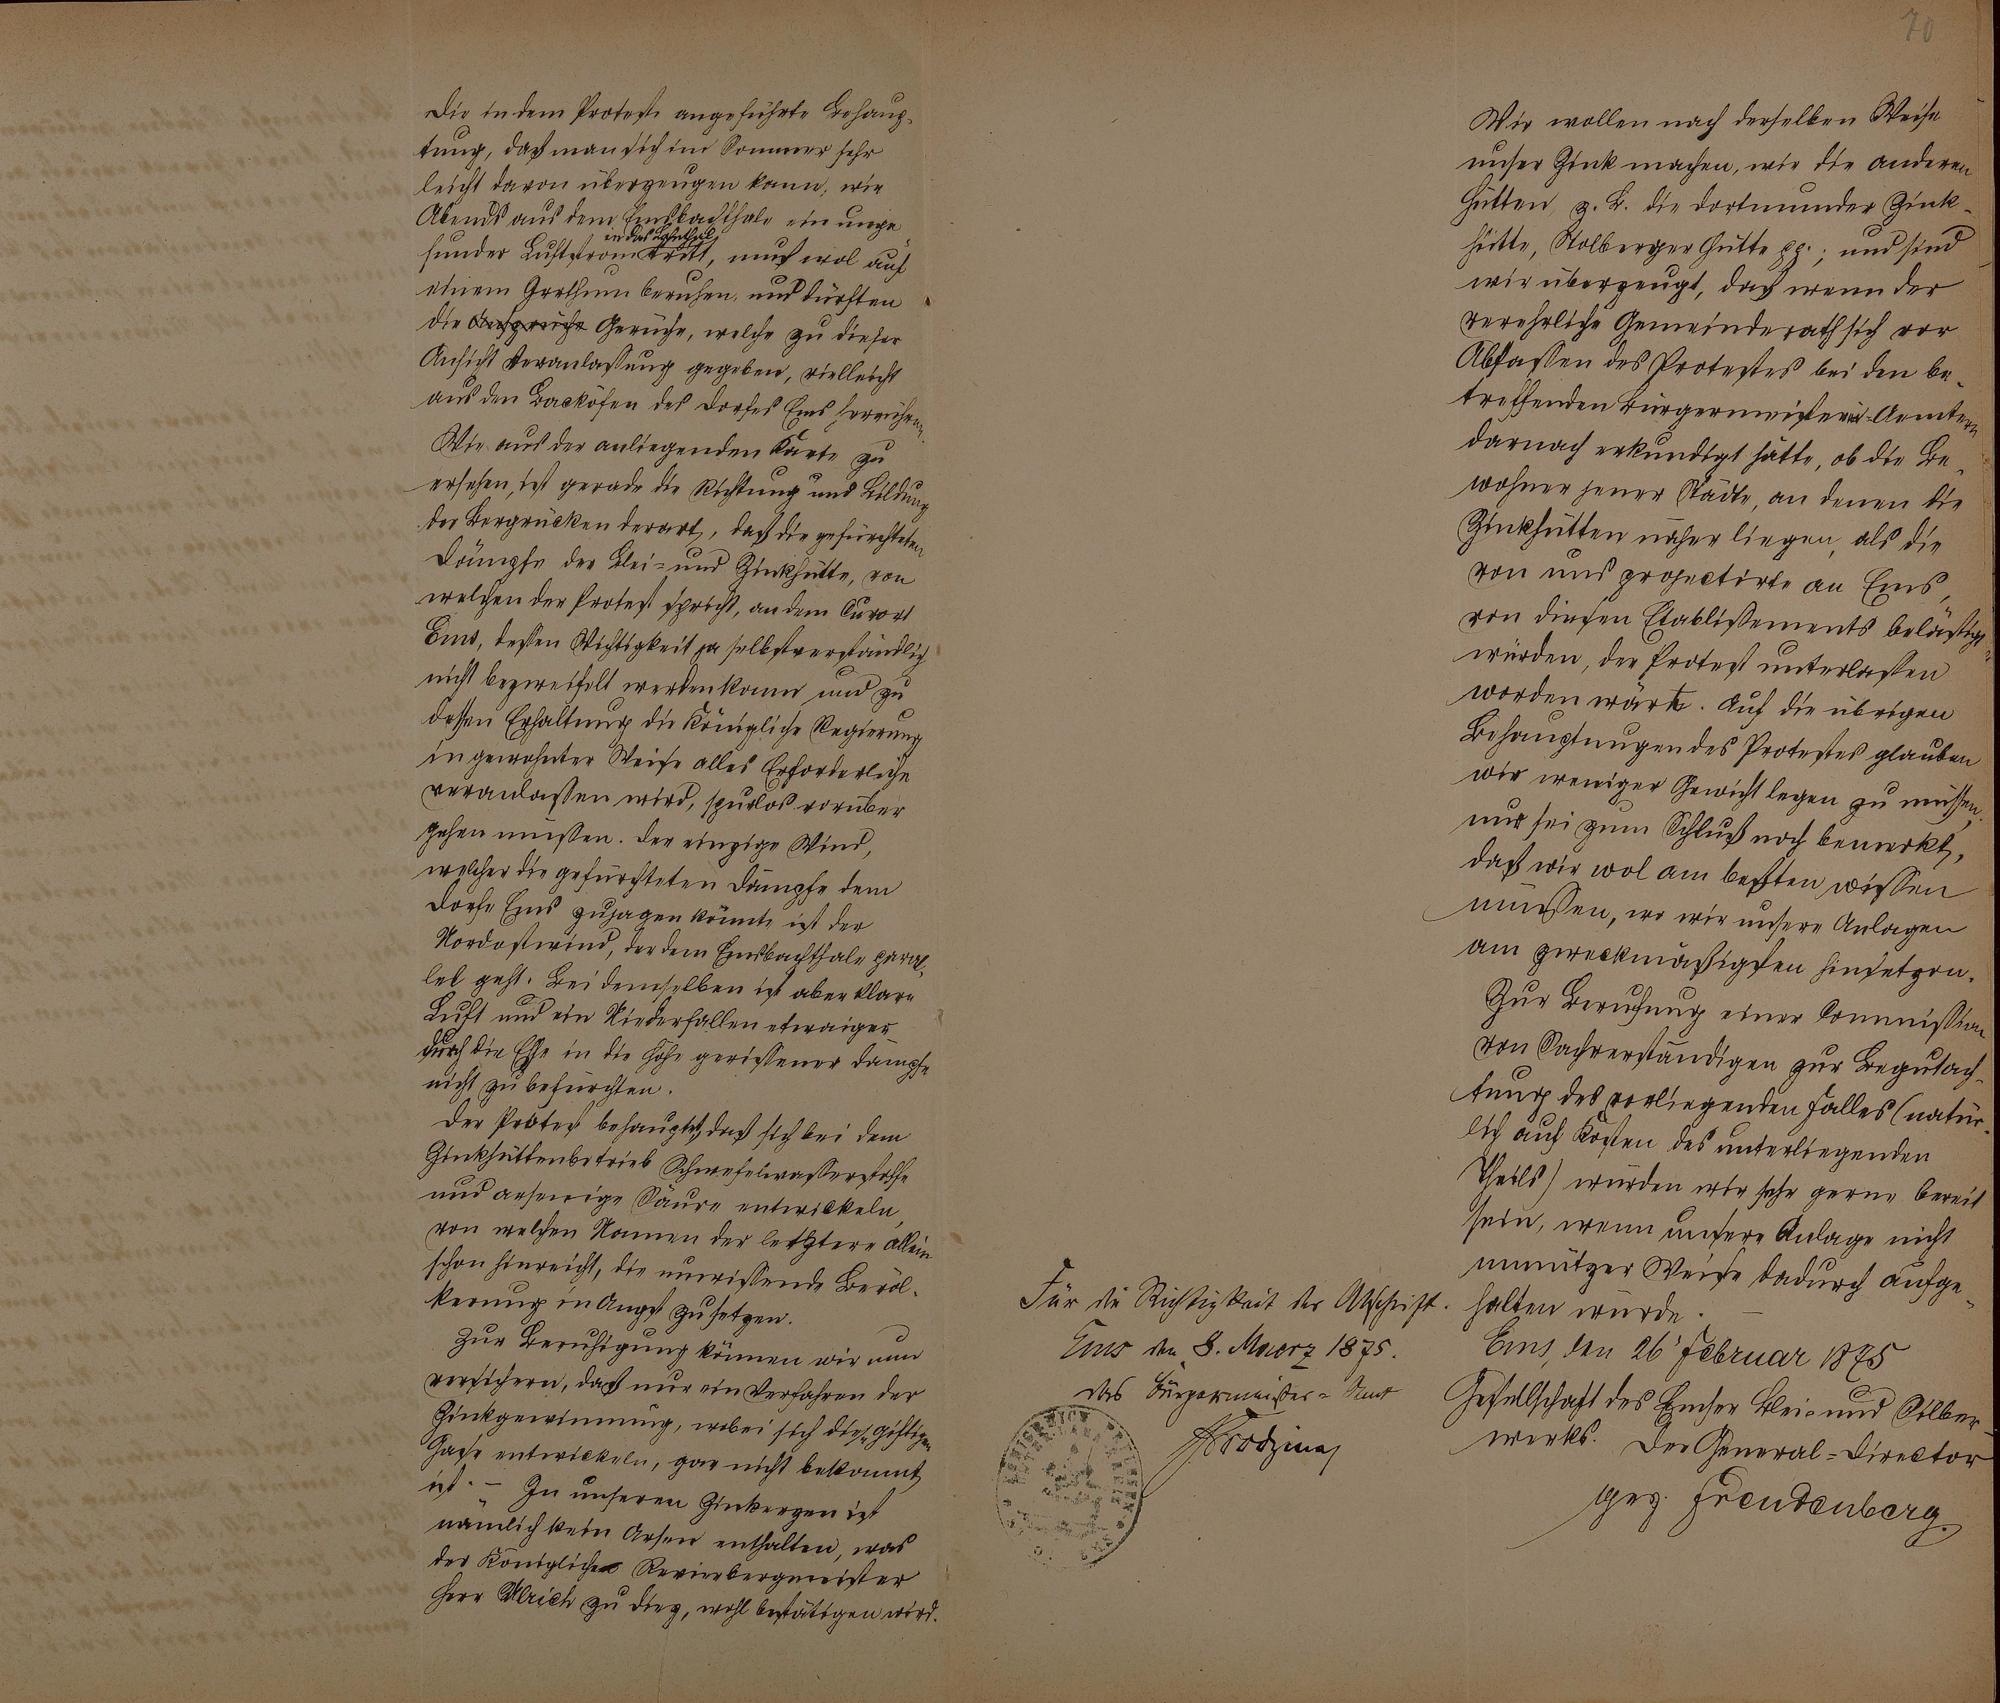 Die in dem Proteste angeführte Behaup-
tung, daß man sich im Sommer sehr
leicht davon überzeugen kann, wie
Abends aus dem Emsbachthale ein unge
sunder Luftstrom in das Lahnthal tritt, muß wol auf
einem Irrthum beruhen, und dürften
die Gerüche, welche zu dieser
Ansicht Veranlassung gegeben, vielleicht
aus den Backöfen des Dorfes Ems herrühren.
Wie aus der anliegenden Karte zu
ersehen, ist gerade die Richtung und Bildung
der Bergrücken derart, daß die gefürchteten
Dämpfe der Blei- und Zinkhütte, von
welchen der Protest spricht, an dem Curort
Ems, dessen Wichtigkeit ja selbstverständlich
nicht bezweifelt werden kann und zu
dessen Erhaltung die Königliche Regierung
in gewohnter Weise alles Erforderliche
veranlassen wird, spurlos vorüber
gehen müssen. Der einzige Wind,
welcher die gefürchteten Dämpfe dem
Dorfe Ems zujagen könnte ist der
Nordostwind, der dem Emsbachthale paral-
lel geht. Bei demselben ist aber klare
Luft und ein Niederfallen etwaiger
durch die Esse in die Höhe gerissener Dämpfe
nicht zu befürchten.
Der Protest behauptet, daß sich bei dem
Zinkhüttenbetrieb Schwefelwasserstoffe
und arsenige Säure entwickeln,
von welchen Namen der letztere allein
schon hinreicht, die unwissende Bevöl-
kerung in Angst zu setzen.
Zur Beruhigung können wir nun
versichern, daß nur ein Verfahren der
Zinkgewinnung, wobei sich diese giftigen
Gase entwickeln, gar nicht bekannt
ist. – In unseren Zinkerzen ist
nämlich kein Arsen enthalten, was
der Königliche Revierbergmeister
Herr Ulrich zu Diez, wohl bestätigen wird.
Für die Richtigkeit der Abschrift.
Ems den 8. Maerz 1875.
Das Bürgermeister-Amt
70
Wir wollen nach derselben Weise
unser Zink machen, wie die anderen
Hütten, z. B. die Dortmunder Zink-
hütte, Stolberger Hütte pp.; und sind
wir überzeugt, daß wenn der
verehrliche Gemeinderath sich vor
Abfassen des Protestes bei den be-
treffenden Bürgermeisterei-Aemtern
darnach erkundigt hätte, ob die Be-
wohner jener Städte, an denen die
Zinkhütten näher liegen, als die
von uns projectirte an Ems,
von diesen Etablissements belästigt
würden, der Protest unterlassen
worden wäre. Auf die übrigen
Behauptungen des Protestes glauben
wir weniger Gewicht legen zu müssen,
nur sei zum Schluß noch bemerkt,
daß wir wol am besten wissen
müssen, wo wir unsere Anlagen
am zweckmäßigsten hinsetzen.
Zur Berufung einer Commission
von Sachverständigen zur Begutach-
tung des vorliegenden Falles (natür-
lich auf Kosten des unterliegenden
Theils) würden wir sehr gerne bereit
sein, wenn unsere Anlage nicht
unnützer Weise dadurch aufge-
halten würde. –
Ems, den 26' Februar 1875
Gesellschaft des Emser Blei- und Silber-
werks. Der General-Director
gez. Freudenberg.